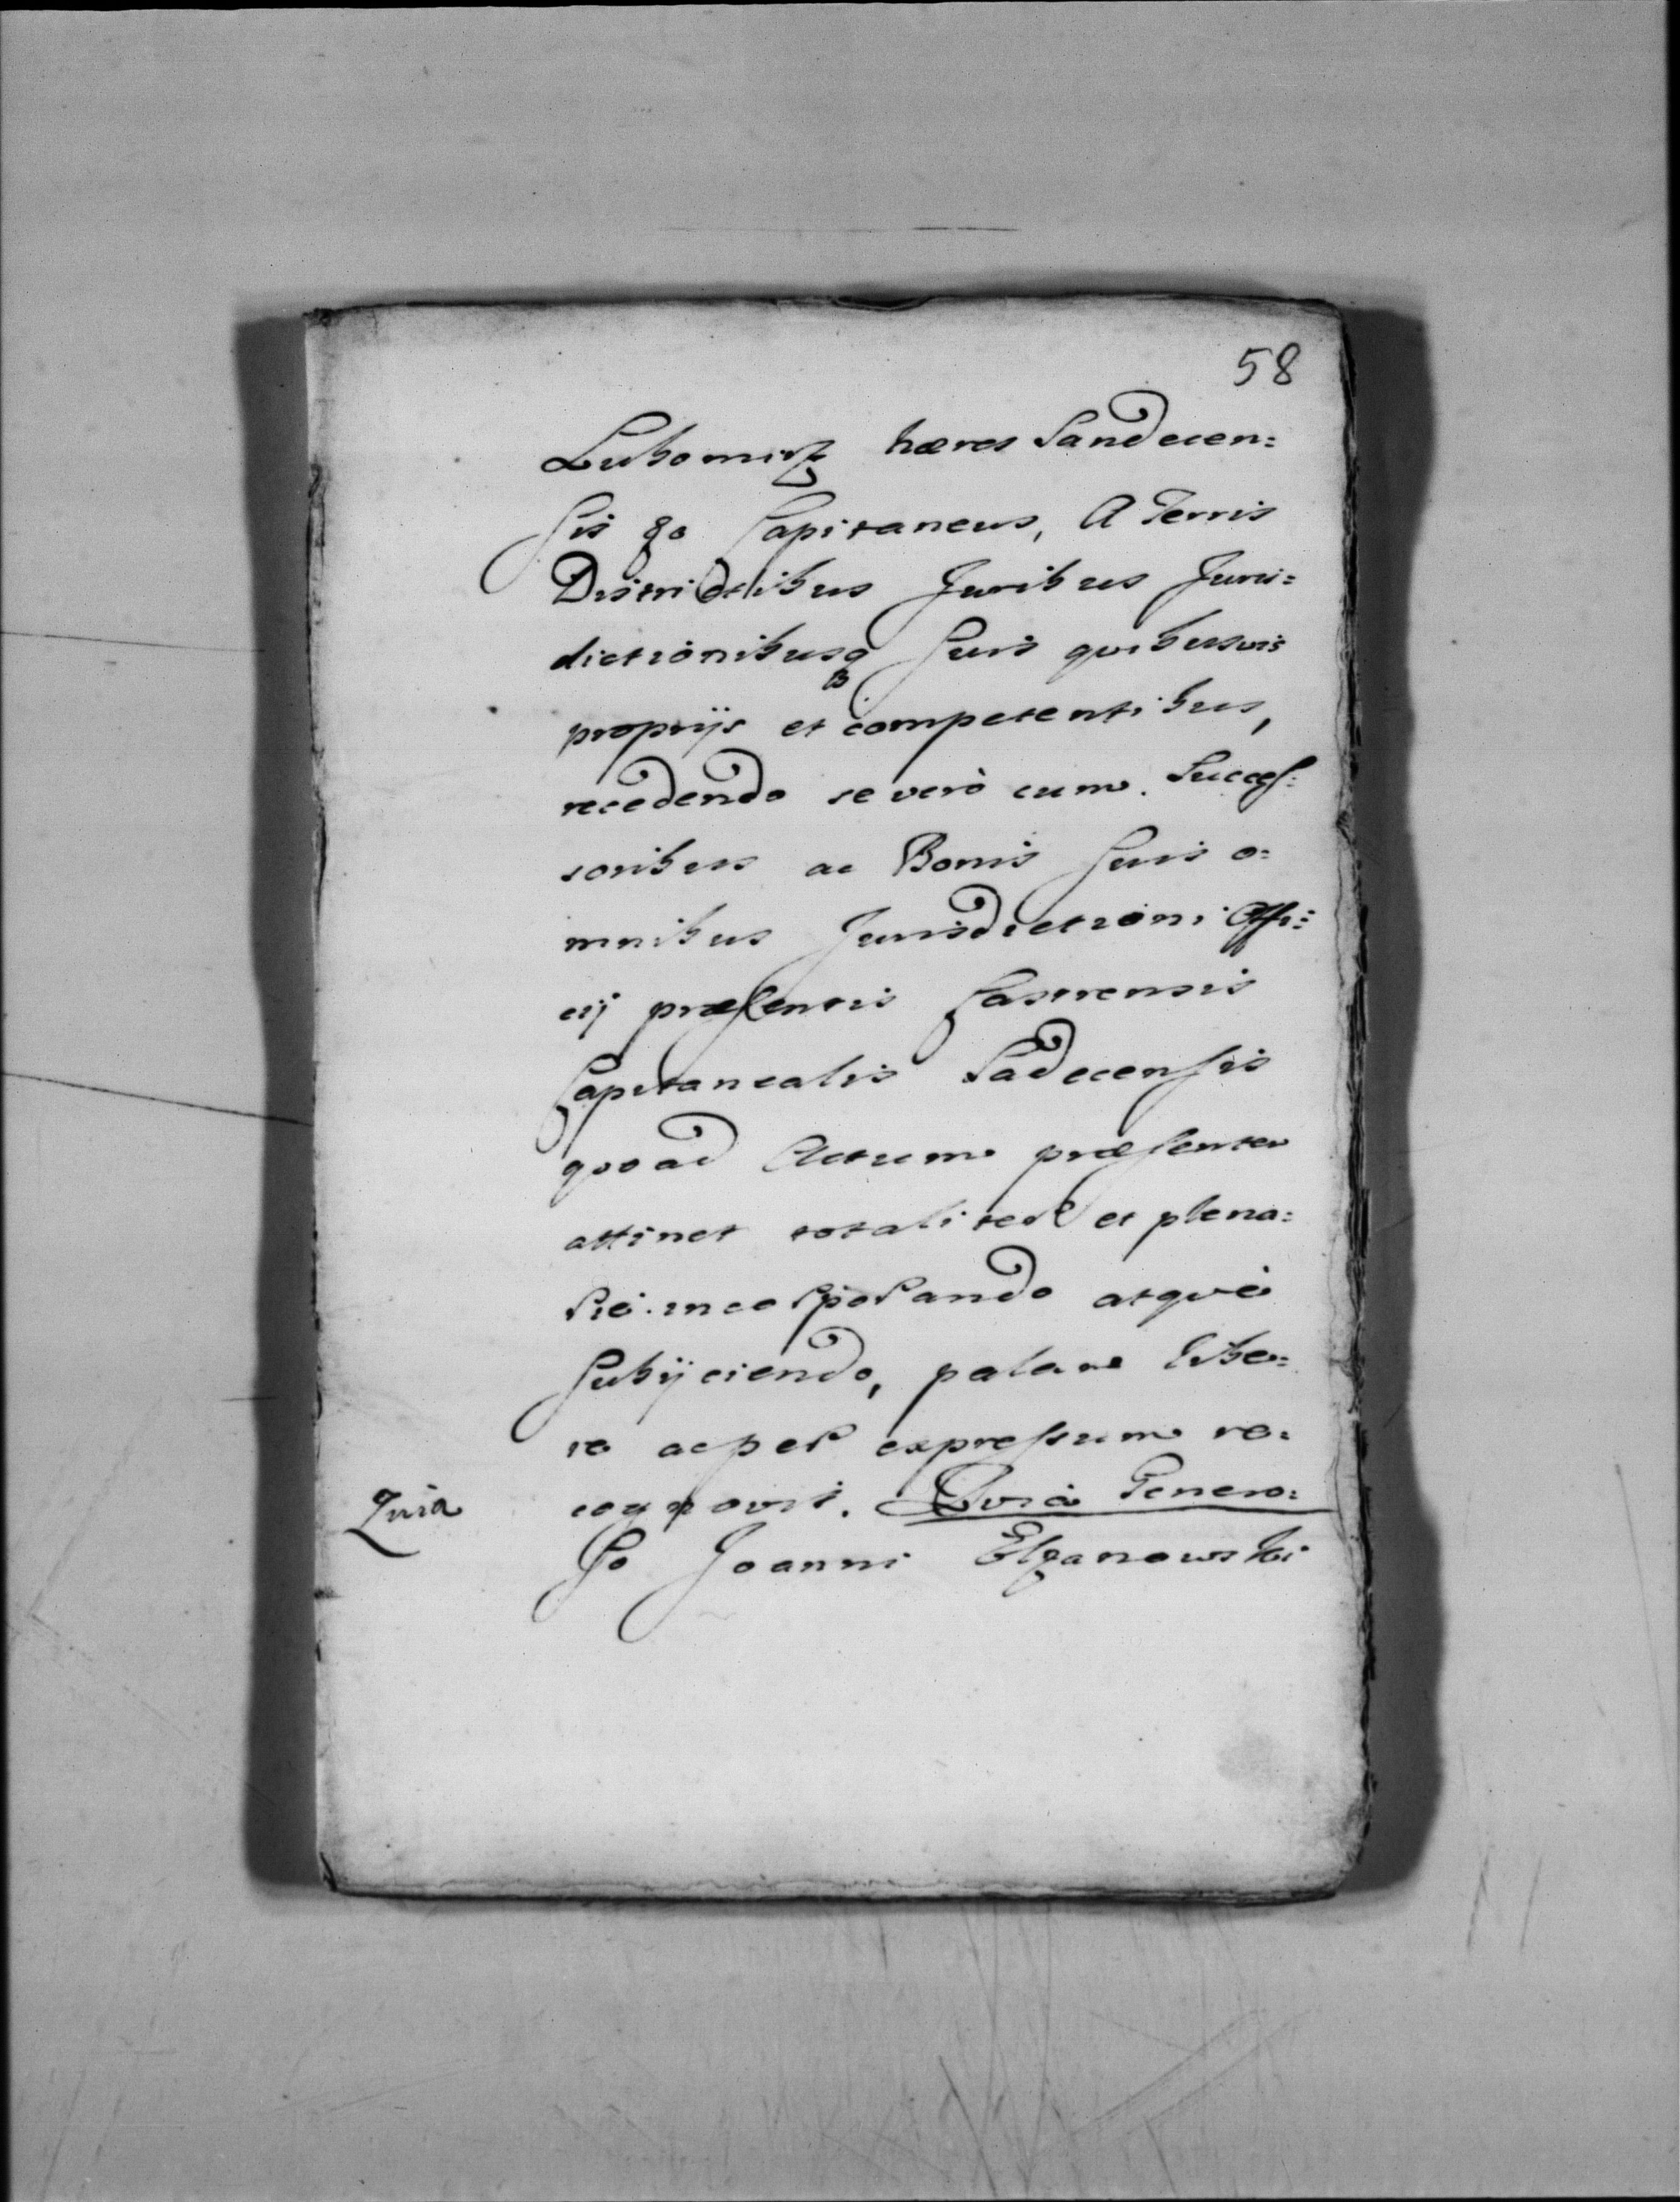 58
Lubomirz hæres Sandecen=
sis &c Capitaneus, A Terris
Districtibus Juribus Juris=
dictionibusq suis quibusvis
proprijs et competentibus,
recedendo se verò cum Succes=
soribus ac Bonis suis o=
mnibus Jurisdictioni Offi=
cij præsentis Castrensis
Capitanealis Sadecensis
quoad Actum præsentem
attinet totaliter et plena=
riè incorporando atquè
subijciendo, palam libe=
re ac per expressum re=
cognovit. Quia Genero=
so Joanni Elżanowski
Quia